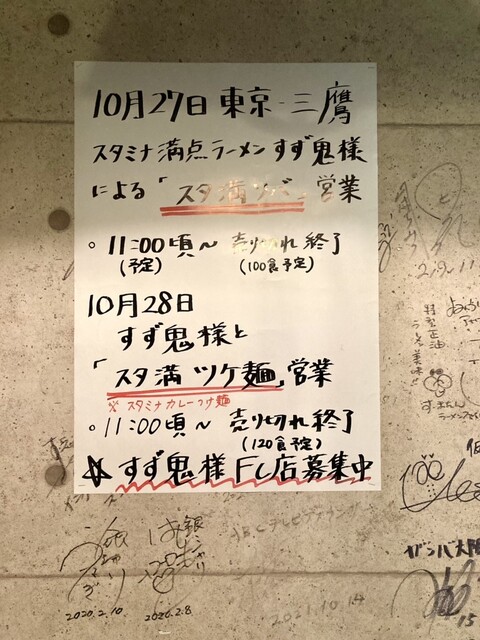 10月27日 東京・三鷹
スタミナ満点ラーメンすず鬼様
による「スタ満ソバ」営業
○ 11:00頃〜 売り切れ終了
(予定) (100食予定)
10月28日
すず鬼様と
「スタ満ツケ麺」営業
※スタミナカレーつけ麺
○11:00頃〜 売り切れ終了
(120食予定)
☆すず鬼様FC店募集中
2020.2.10
2020.2.8
2021.10.14
ガンバ大阪
15